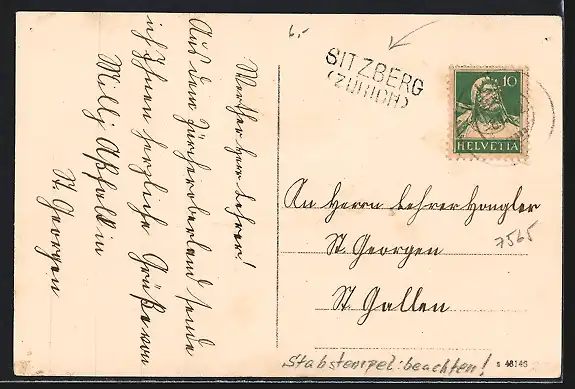 Werther Herr Lehrer!
Aus dem Zürcheroberland sende
ich Ihnen herzliche Grüße von
Milly
St. Georgen
6.-
SITZBERG
(ZÜRICH)
10
HELVETIA
An Herrn Lehrer Hongler
7565
St. Georgen
St. Gallen
Stabstempel beachten!